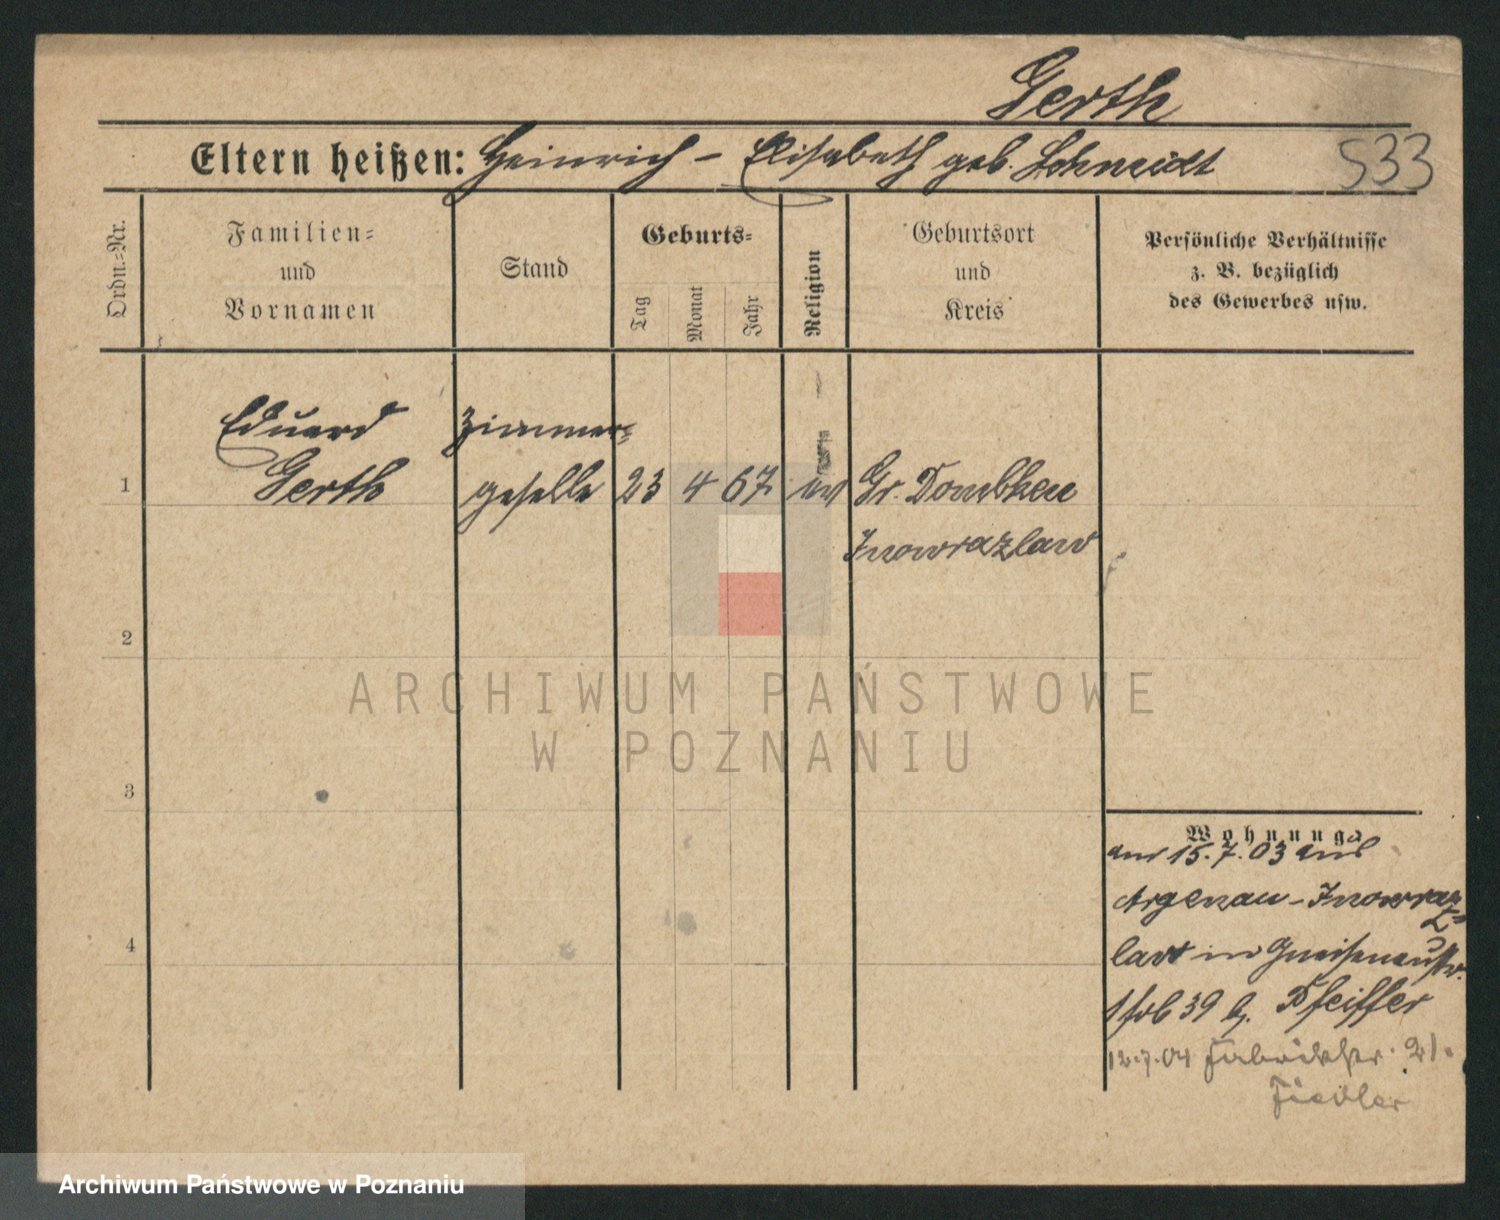 Gerth
Eltern heißen: Heinrich – Elisabeth geb. Schmidt
533
Ordn.=Nr.
Familien=
und
Vornamen
Stand
Geburts=
Tag
Monat
Jahr
Religion
Geburtsort
und
Kreis
Persönliche Verhältnisse
z. B. bezüglich
des Gewerbes usw.
Eduard Zimmer=
1 Gerth geselle 23 4 67 ev Gr. Dombken
Inowrazlaw
2
ARCHIWUM PAŃSTWOWE
W POZNANIU
3
4
Wohnung
am 15.7.03 aus
Argenau – Inowraz=
law in Gneisenaustr.
39 b. Pfeiffer
12.7.04 Fabrikstr. 21.
Fiedler
Archiwum Państwowe w Poznaniu